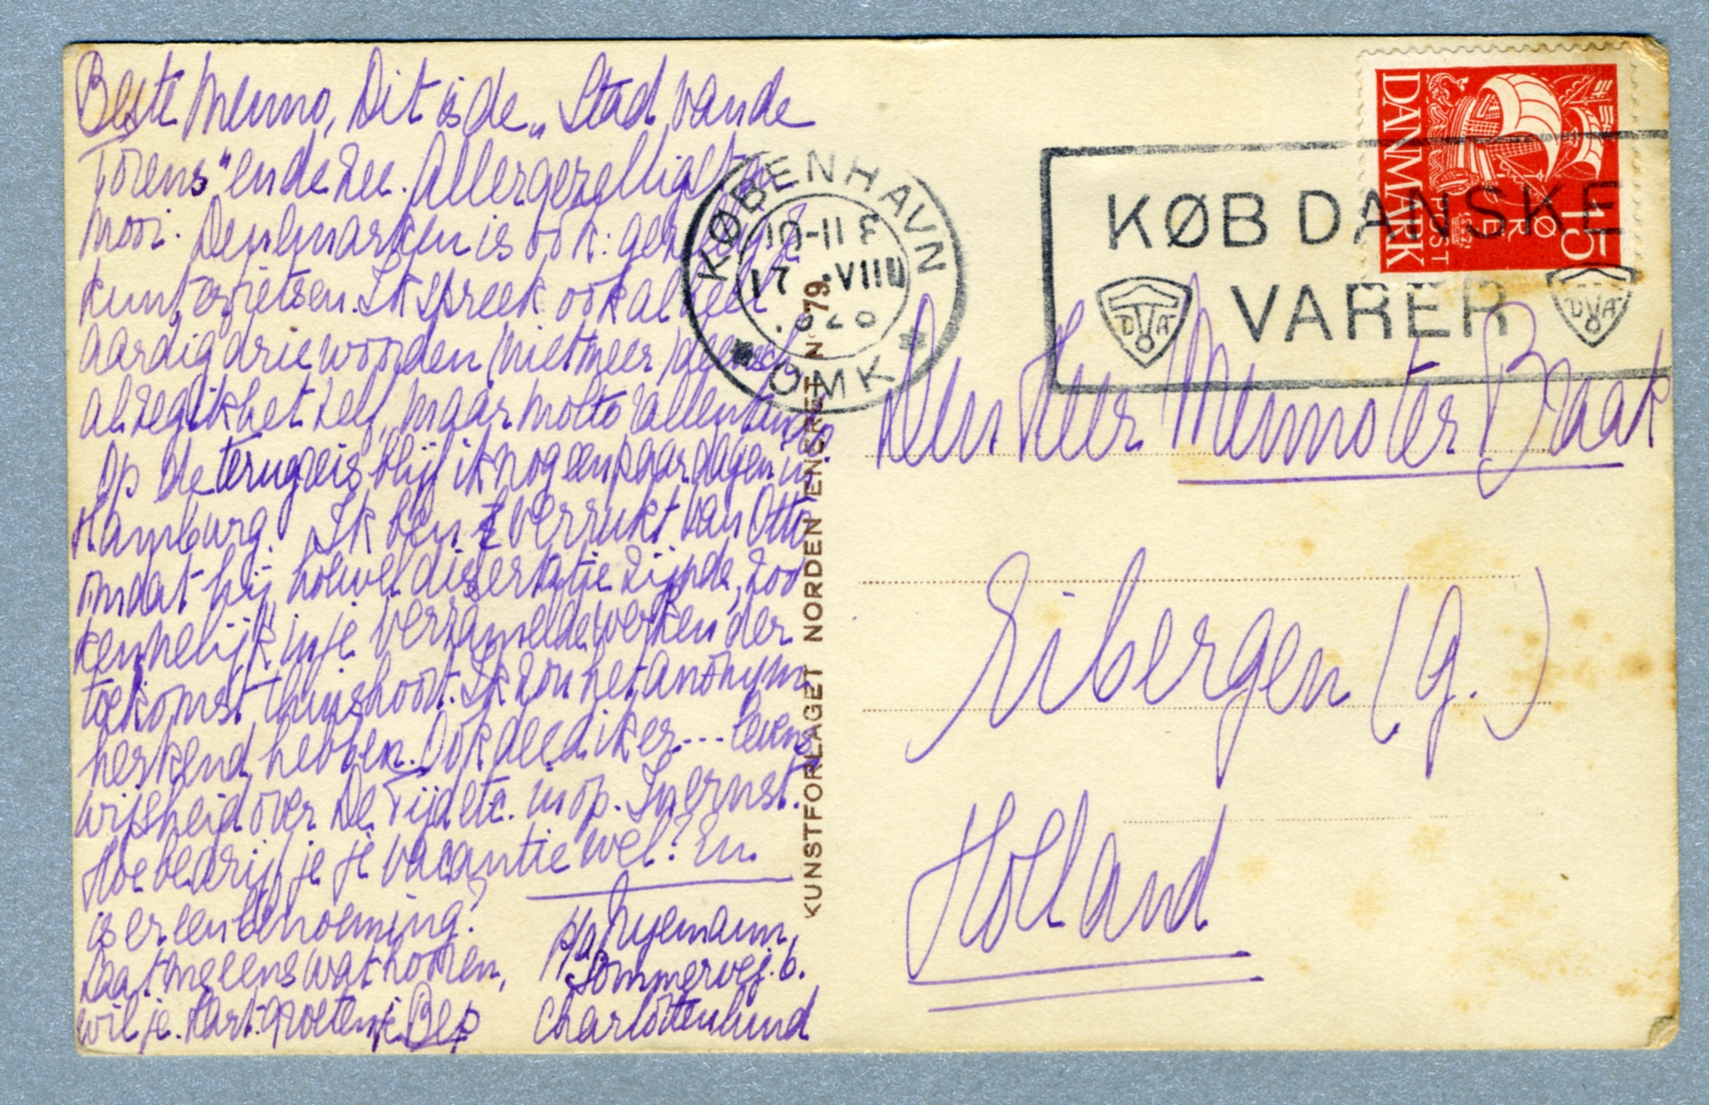 Beste Menno, Dit is de „Stad van de
Torens" en de Zee. Allergezelligst
mooi. Denemarken is ook: gezellig
kunt er fietsen. Ik spreek ook al heel
aardig drie woorden, niet meer
al zeg ik het zelf, maar molto
Op de terugreis blijf ik nog een paar dagen in
Hamburg. Ik ben verrukt van Otto
omdat hij, hoewel dissertatie zijnde, zoo
kennelijk in je verzamelde werken der
toekomst thuishoort. Ik zou het anonym
herkend hebben. Ook deed ik er... levens
wijsheid over De Tijd etc. in op. In ernst.
Hoe bedrijf je je vacantie wel? En
is er een benoeming?
Laat me eens wat hooren,
wil je. Hart. groeten, Bep
p/a
Sommervej. 6.
Charlottenlund
KØBENHAVN
10-11 F
17 .VIII
OMK.
KØB DANSKE
VARER
DVA
DVA
DANMARK
POST
15
ØRE
KUNSTFORLAGET NORDEN ENERET N 79
Den Heer Menno ter Braak
Eibergen (G.)
Holland